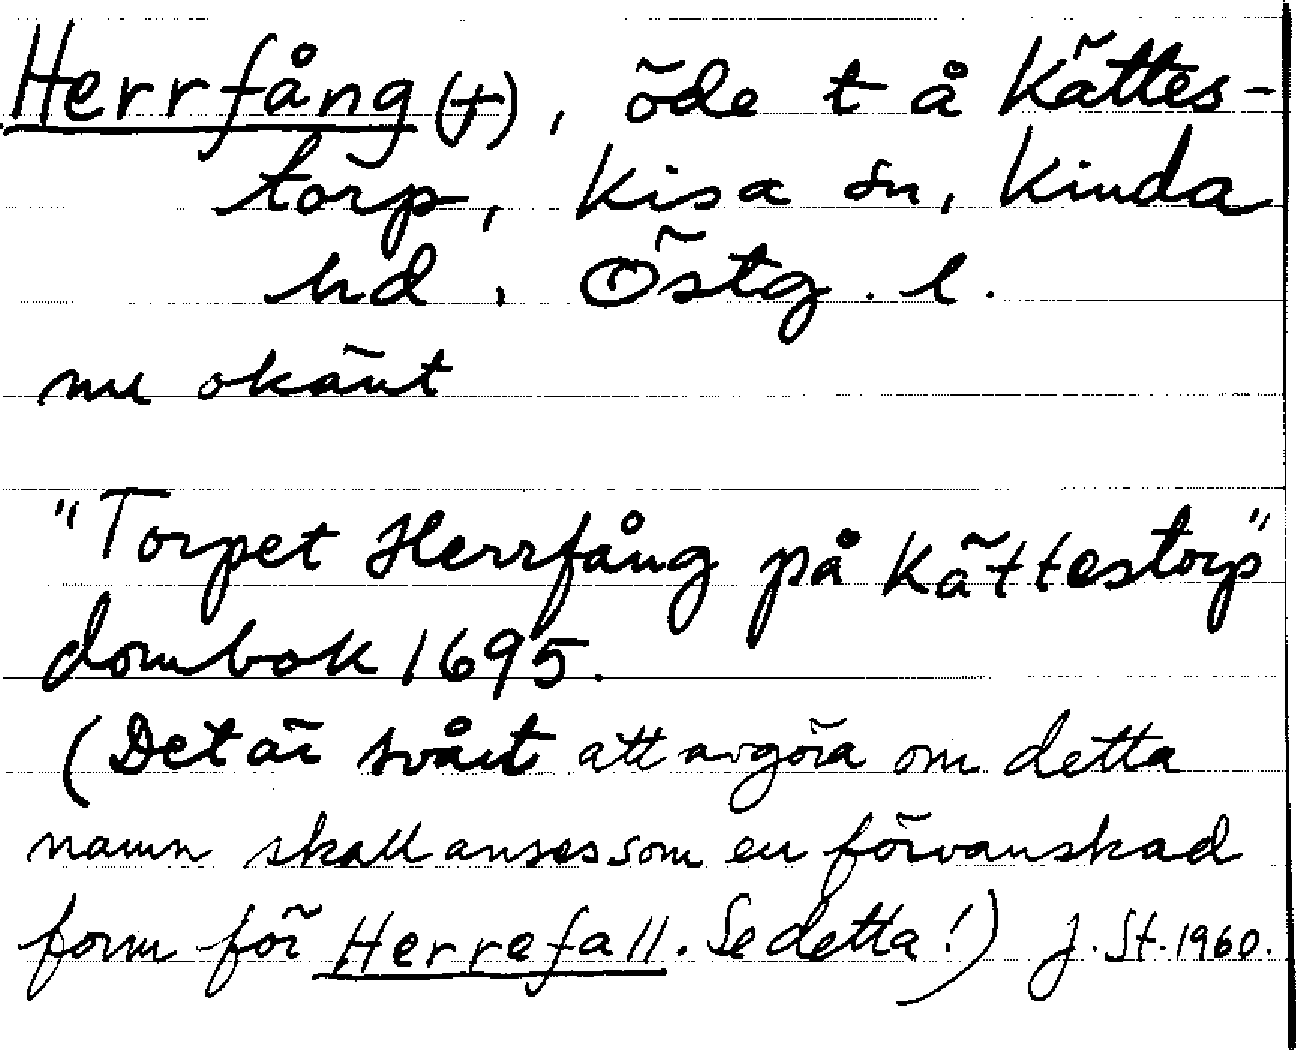 Herrfång (†), öde t å Kättes-
torp, Kisa sn, Kinda
hd, Östg. l.
nu okänt
"Torpet Herrfång på Kättestorp"
dombok 1695.
(Det är svårt att avgöra om detta
namn skall anses som en förvanskad
form för Herrefall. Se detta!) J. St. 1960.